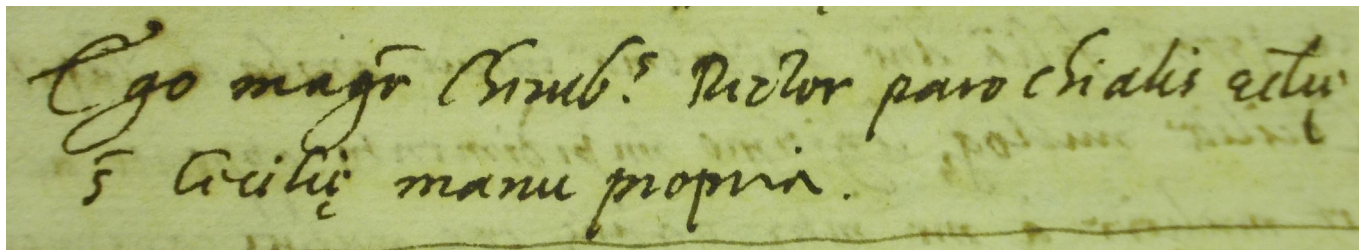 Ego magr Chirub.s Rector parochialis
s Cecilię manu propria.